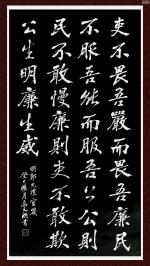 吏不畏吾嚴而畏吾廉民
不服吾能而服吾公公則
民不敢慢廉則吏不敢欺
公生明廉生威
明郭允禮官箴
月書